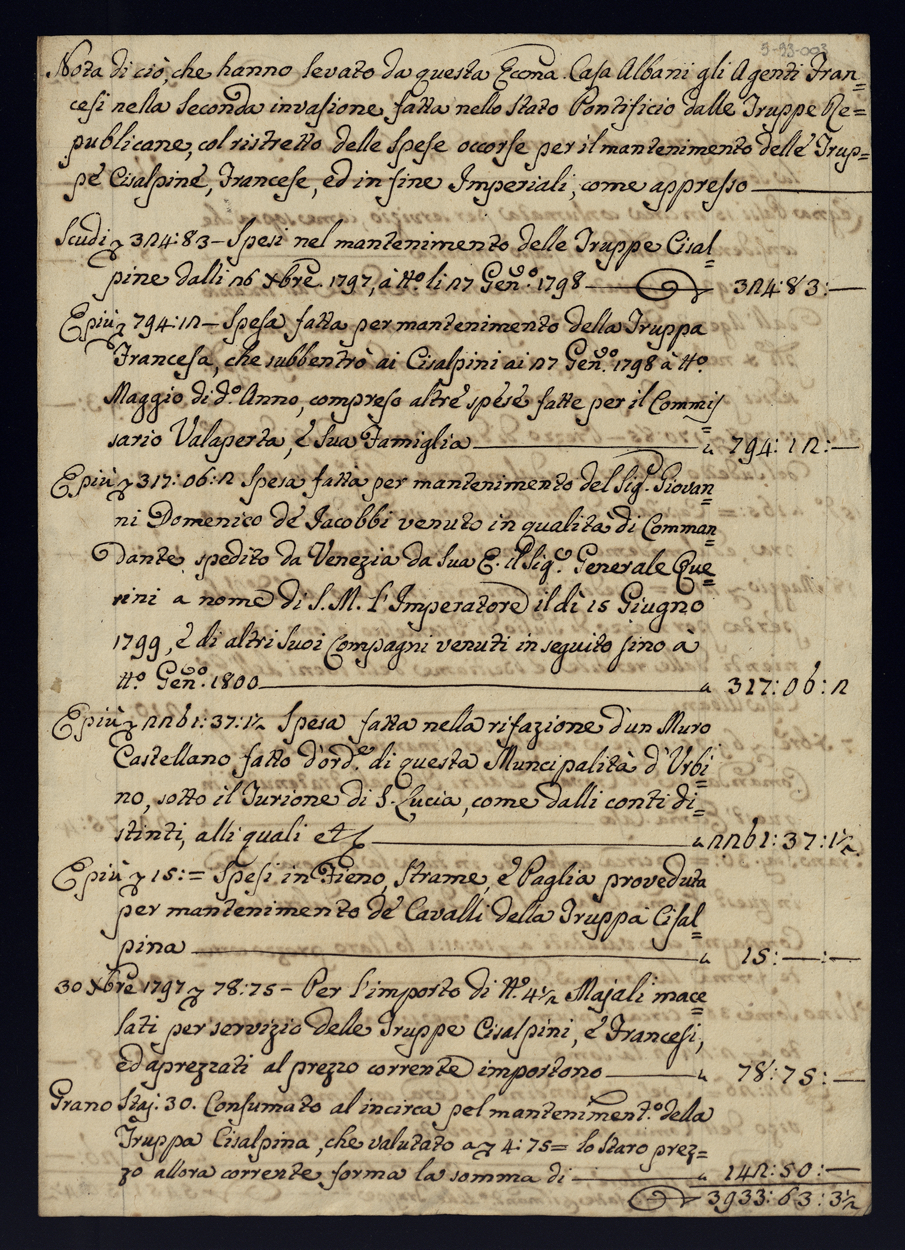 5-93-003
Nota di ciò, che hanno levato da questa Eccma. Casa Albani gli Agenti Fran=
cesi nella seconda invasione fatta nello Stato Pontificio dalle Truppe Re=
publicane, col ristretto delle spese occorse per il mantenimento delle Trup=
pe Cisalpine, Francese, ed in fine Imperiali, come appresso —
Scudi 324:83 – Spesi nel mantenimento delle Truppe Cisal=
pine dalli 26 Xbre. 1797, à tt.o li 27 Gen.o 1798 — 324:83:—
E più 794:12 – Spesa fatta per mantenimento della Truppa
Francesa, che subbentrò ai Cisalpini ai 27 Gen.o 1798 à tt.o
Maggio di d.o Anno, compreso altre spese fatte per il Commis=
sario Valaperta, e sua Famiglia — 794:12:—
E più 317:06:2 Spesa fatta per mantenimento del Sig.r Giovan=
ni Domenico de Iacobbi venuto in qualità di Comman=
dante spedito da Venezia da Sua E. il Sig.r Generale Que=
rini a nome di S. M. l'Imperatore il dì 15 Giugno
1799, e di altri suoi Compagni venuti in seguito sino à
tt.o Gen.o 1800 — 317:06:2
E più 2261:37:1½ Spesa fatta nella rifazione d'un Muro
Castellano fatto d'ord.e di questa Muncipalità d'Urbi=
no, sotto il Turione di S. Lucia, come dalli conti di=
stinti, alli quali etc — 2261:37:1½
E più 15:= Spesi in Fieno, Strame, e Paglia proveduta
per mantenimento de Cavalli della Truppa Cisal=
pina — 15:—:—
30 Xbre 1797 78:75 – Per l'importo di N.o 4½ Majali mace=
lati per servizio delle Truppe Cisalpini, e Francesi,
ed aprezzati al prezzo corrente importono — 78:75:—
Grano Staj. 30. Consumato al incirca pel manteniment.o della
Truppa Cisalpina, che valutato a 4:75= lo Staro prez=
zo allora corrente forma la somma di — 142:50:—
3933:63:3½